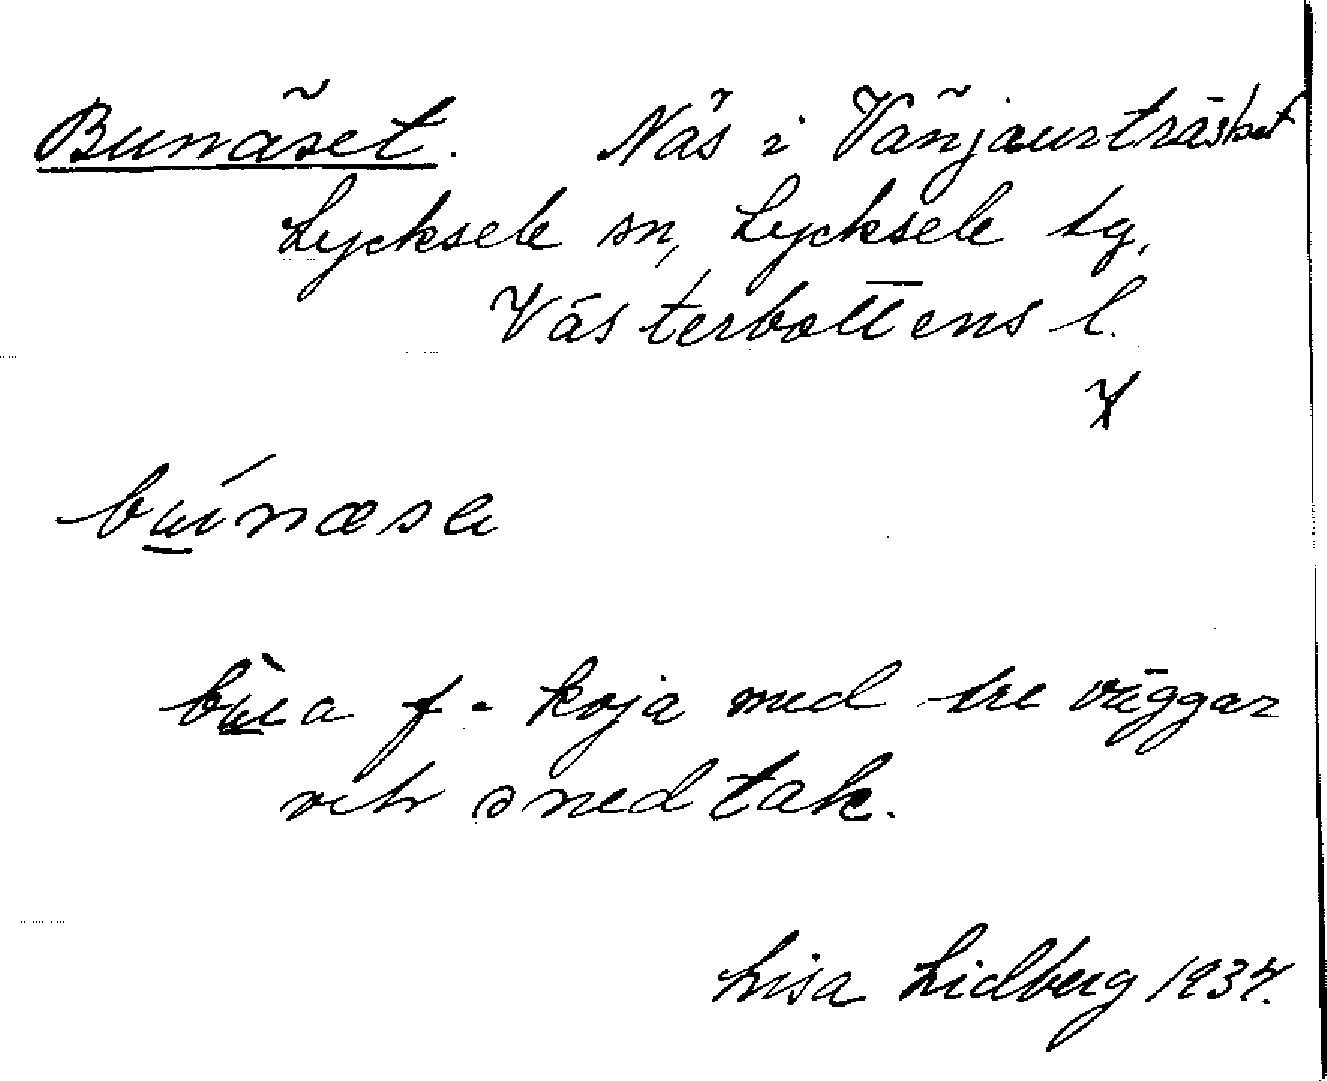 Bunäset. Näs i Vänjaurträsket
Lycksele sn, Lycksele tg,
Västerbottens l.
X
búnæsa
bùa f. koja med tre väggar
och snedtak.
Lisa Lidberg 1937.